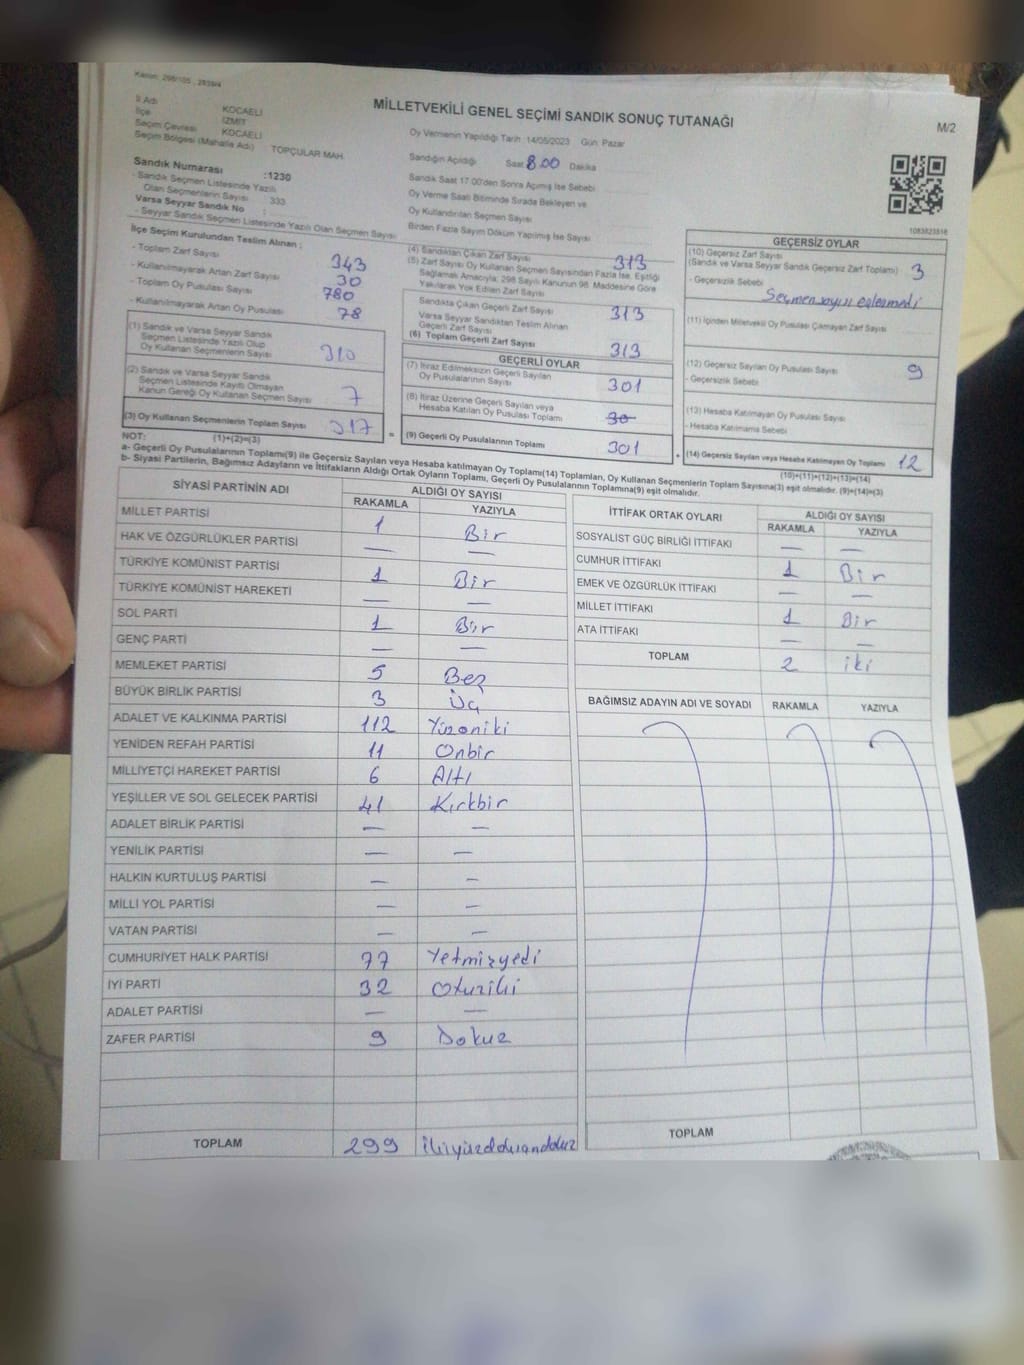 Kanun: 298/105, 2839/4
MİLLETVEKİLİ GENEL SEÇİMİ SANDIK SONUÇ TUTANAĞI
M/2
İl Adı KOCAELİ
İlçe İZMİT
Seçim Çevresi KOCAELİ
Seçim Bölgesi (Mahalle Adı) TOPÇULAR MAH.
Sandık Numarası :1230
- Sandık Seçmen Listesinde Yazılı
Olan Seçmenlerin Sayısı : 333
Varsa Seyyar Sandık No :
- Seyyar Sandık Seçmen Listesinde Yazılı Olan Seçmen Sayısı
Oy Vermenin Yapıldığı Tarih :14/05/2023 Gün: Pazar
Sandığın Açıldığı Saat 8.00 Dakika
Sandık Saat 17:00'den Sonra Açılmış İse Sebebi
Oy Verme Saati Bitiminde Sırada Bekleyen ve
Oy Kullandırılan Seçmen Sayısı
Birden Fazla Sayım Döküm Yapılmış İse Sayısı
1083823518
İlçe Seçim Kurulundan Teslim Alınan ;
- Toplam Zarf Sayısı 343
- Kullanılmayarak Artan Zarf Sayısı 30
- Toplam Oy Pusulası Sayısı 780
- Kullanılmayarak Artan Oy Pusulası 78
(1) Sandık ve Varsa Seyyar Sandık
Seçmen Listesinde Yazılı Olup
Oy Kullanan Seçmenlerin Sayısı 310
(2) Sandık ve Varsa Seyyar Sandık
Seçmen Listesinde Kayıtlı Olmayan
Kanun Gereği Oy Kullanan Seçmen Sayısı 7
(3) Oy Kullanan Seçmenlerin Toplam Sayısı 317
(4) Sandıktan Çıkan Zarf Sayısı 313
(5) Zarf Sayısı Oy Kullanan Seçmen Sayısından Fazla İse, Eşitliği
Sağlamak Amacıyla; 298 Sayılı Kanunun 98. Maddesine Göre
Yakılarak Yok Edilen Zarf Sayısı
Sandıkta Çıkan Geçerli Zarf Sayısı 313
Varsa Seyyar Sandıktan Teslim Alınan
Geçerli Zarf Sayısı
(6) Toplam Geçerli Zarf Sayısı 313
GEÇERLİ OYLAR
(7) İtiraz Edilmeksizin Geçerli Sayılan
Oy Pusulalarının Sayısı 301
(8) İtiraz Üzerine Geçerli Sayılan veya
Hesaba Katılan Oy Pusulası Toplamı 30
= (9) Geçerli Oy Pusulalarının Toplamı 301
GEÇERSİZ OYLAR
(10) Geçersiz Zarf Sayısı
(Sandık ve Varsa Seyyar Sandık Geçersiz Zarf Toplamı) 3
- Geçersizlik Sebebi
Seçmen sayısı eşleşmedi
(11) İçinden Milletvekili Oy Pusulası Çıkmayan Zarf Sayısı
(12) Geçersiz Sayılan Oy Pusulası Sayısı 9
- Geçersizlik Sebebi
(13) Hesaba Katılmayan Oy Pusulası Sayısı
- Hesaba Katılmama Sebebi
+ (14) Geçersiz Sayılan veya Hesaba Katılmayan Oy Toplamı 12
NOT: (1)+(2)=(3)
(10)+(11)+(12)+(13)=(14)
a- Geçerli Oy Pusulalarının Toplamı(9) ile Geçersiz Sayılan veya Hesaba katılmayan Oy Toplamı(14) Toplamları, Oy Kullanan Seçmenlerin Toplam Sayısına(3) eşit olmalıdır. (9)+(14)=(3)
b- Siyasi Partilerin, Bağımsız Adayların ve İttifakların Aldığı Ortak Oyların Toplamı, Geçerli Oy Pusulalarının Toplamına(9) eşit olmalıdır.
SİYASİ PARTİNİN ADI ALDIĞI OY SAYISI
RAKAMLA YAZIYLA
MİLLET PARTİSİ 1 Bir
HAK VE ÖZGÜRLÜKLER PARTİSİ — —
TÜRKİYE KOMÜNİST PARTİSİ 1 Bir
TÜRKİYE KOMÜNİST HAREKETİ — —
SOL PARTİ 1 Bir
GENÇ PARTİ — —
MEMLEKET PARTİSİ 5 Beş
BÜYÜK BİRLİK PARTİSİ 3 Üç
ADALET VE KALKINMA PARTİSİ 112 Yüzoniki
YENİDEN REFAH PARTİSİ 11 Onbir
MİLLİYETÇİ HAREKET PARTİSİ 6 Altı
YEŞİLLER VE SOL GELECEK PARTİSİ 41 Kırkbir
ADALET BİRLİK PARTİSİ — —
YENİLİK PARTİSİ — —
HALKIN KURTULUŞ PARTİSİ — —
MİLLİ YOL PARTİSİ — —
VATAN PARTİSİ — —
CUMHURİYET HALK PARTİSİ 77 Yetmişyedi
İYİ PARTİ 32 Otuziki
ADALET PARTİSİ — —
ZAFER PARTİSİ 9 Dokuz
TOPLAM 299 İkiyüzdoksandokuz
İTTİFAK ORTAK OYLARI ALDIĞI OY SAYISI
RAKAMLA YAZIYLA
SOSYALİST GÜÇ BİRLİĞİ İTTİFAKI — —
CUMHUR İTTİFAKI 1 Bir
EMEK VE ÖZGÜRLÜK İTTİFAKI — —
MİLLET İTTİFAKI 1 Bir
ATA İTTİFAKI — —
TOPLAM 2 iki
BAĞIMSIZ ADAYIN ADI VE SOYADI RAKAMLA YAZIYLA
TOPLAM